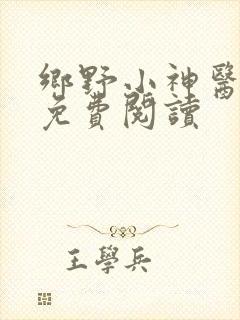 鄉野小神醫
免費閱讀
王學兵